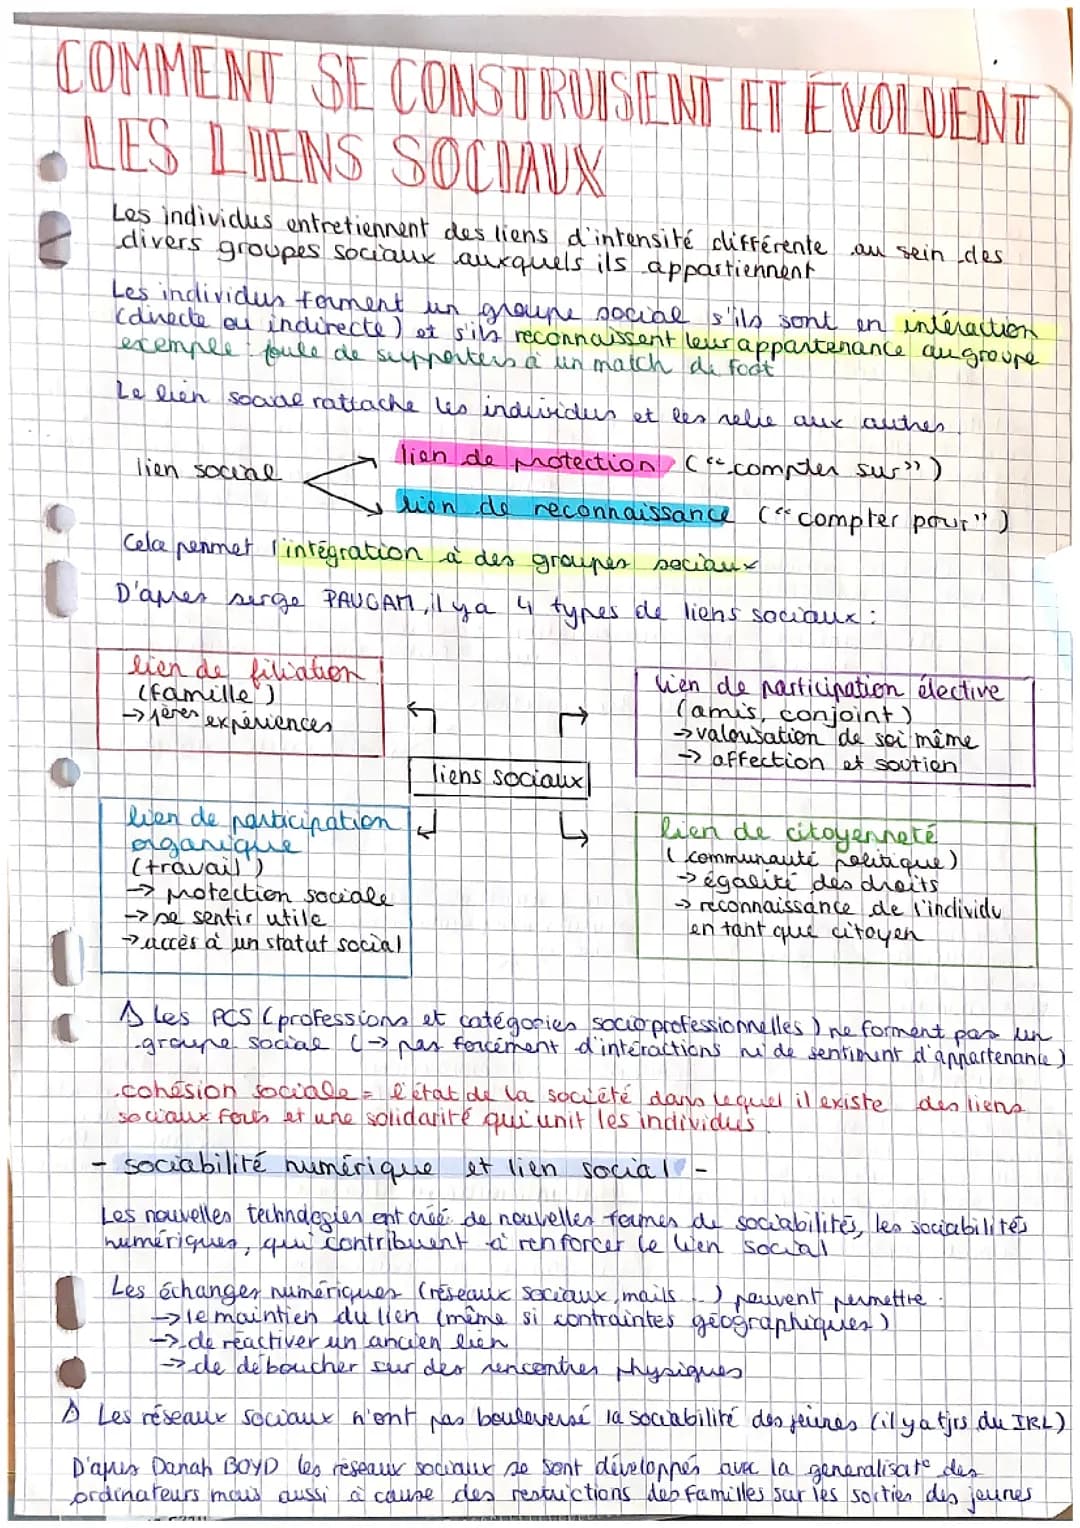 COMMENT SE CONSTRUISENT ET ÉVOLUENT
LES LIENS SOCIAUX
Les individus entretiennent des liens d'intensité différente au sein des
divers groupes sociaux auxquels ils appartiennent
Les individus forment un groupe social s'ils sont en intéraction
(directe ou indirecte) et s'ils reconnaissent leur appartenance au groupe
exemple : foule de supporters à un match de foot
Le lien social rattache les individus et les relie aux autres
lien social
lien de protection ("compter sur")
lien de reconnaissance ("compter pour")
Cela permet l'intégration à des groupes sociaux
D'après serge PAUGAM, il y a 4 types de liens sociaux :
lien de filiation
(famille)
→ 1ères expériences
lien de participation élective
(amis, conjoint)
→ valorisation de soi même
→ affection et soutien
liens sociaux
lien de participation
organique
(travail)
→ protection sociale
→ se sentir utile
→ accès à un statut social
lien de citoyenneté
(communauté politique)
→ égalité des droits
→ reconnaissance de l'individu
en tant que citoyen
⚠ Les PCS (professions et catégories socioprofessionnelles) ne forment pas un
groupe social (→ pas forcément d'intéractions ni de sentiment d'appartenance)
cohésion sociale = l'état de la société dans lequel il existe des liens
sociaux forts et une solidarité qui unit les individus
- sociabilité numérique et lien social -
Les nouvelles technologies ont créé de nouvelles formes de sociabilités, les sociabilités
numériques, qui contribuent à renforcer le lien social
Les échanges numériques (réseaux sociaux, mails ...) peuvent permettre :
→ le maintien du lien (même si contraintes géographiques)
→ de réactiver un ancien lien
→ de déboucher sur des rencontres physiques
⚠ Les réseaux sociaux n'ont pas bouleversé la sociabilité des jeunes (il y a tjrs du IRL)
D'après Danah BOYD les réseaux sociaux se sont développés avec la generalisat° des
ordinateurs mais aussi à cause des restrictions des familles sur les sorties des jeunes